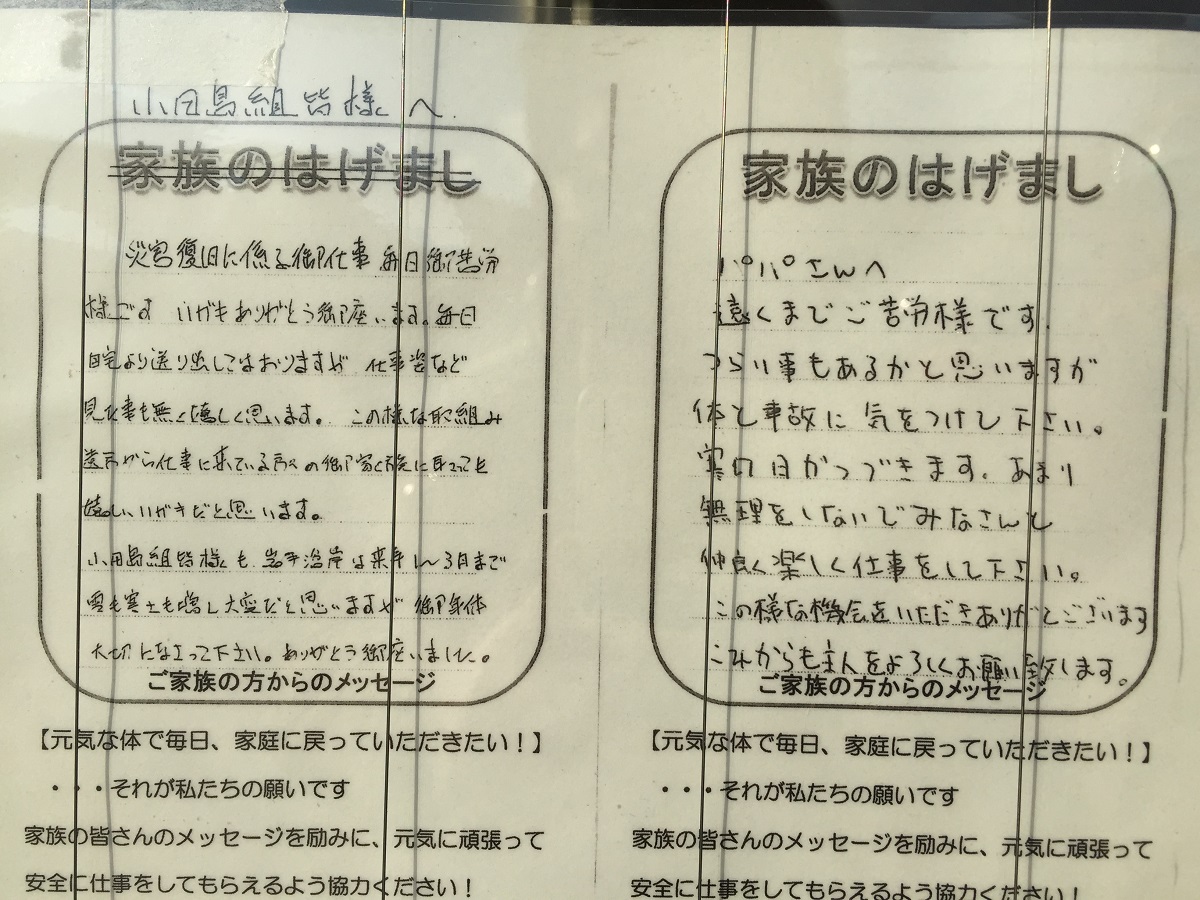 小田島組皆様へ.
家族のはげまし
災害復旧に係る御仕事 毎日御苦労
様です はがきありがとう御座います。毎日
自宅より送り出してはおりますが 仕事姿など
見た事も無く嬉しく思います。この様な取組み
遠方から仕事に来ている方々の御家族に取っても
嬉しいはがきだと思います。
小田島組皆様も 岩手沿岸は来年1〜3月まで
雪も寒さも増し大変だと思いますが 御身体
大切になさって下さい。ありがとう御座いました。
ご家族の方からのメッセージ
【元気な体で毎日、家庭に戻っていただきたい！】
・・・それが私たちの願いです
家族の皆さんのメッセージを励みに、元気に頑張って
安全に仕事をしてもらえるよう協力ください！
家族のはげまし
パパさんへ
遠くまでご苦労様です.
つらい事もあるかと思いますが
体と事故に気をつけて下さい。
寒い日がつづきます。あまり
無理をしないでみなさんと
仲良く楽しく仕事をして下さい。
この様な機会をいただきありがとございます
これからも主人をよろしくお願い致します。
ご家族の方からのメッセージ
【元気な体で毎日、家庭に戻っていただきたい！】
・・・それが私たちの願いです
家族の皆さんのメッセージを励みに、元気に頑張って
安全に仕事をしてもらえるよう協力ください！